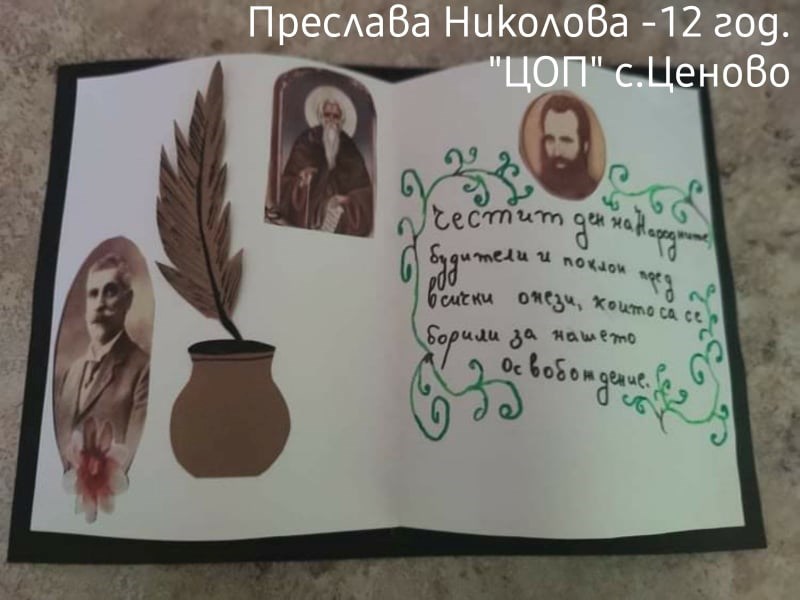 Преслава Николова -12 год.
"ЦОП" с.Ценово
Честит ден на Народните
будители и поклон пред
всички онези, които са се
борили за нашето
Освобождение.